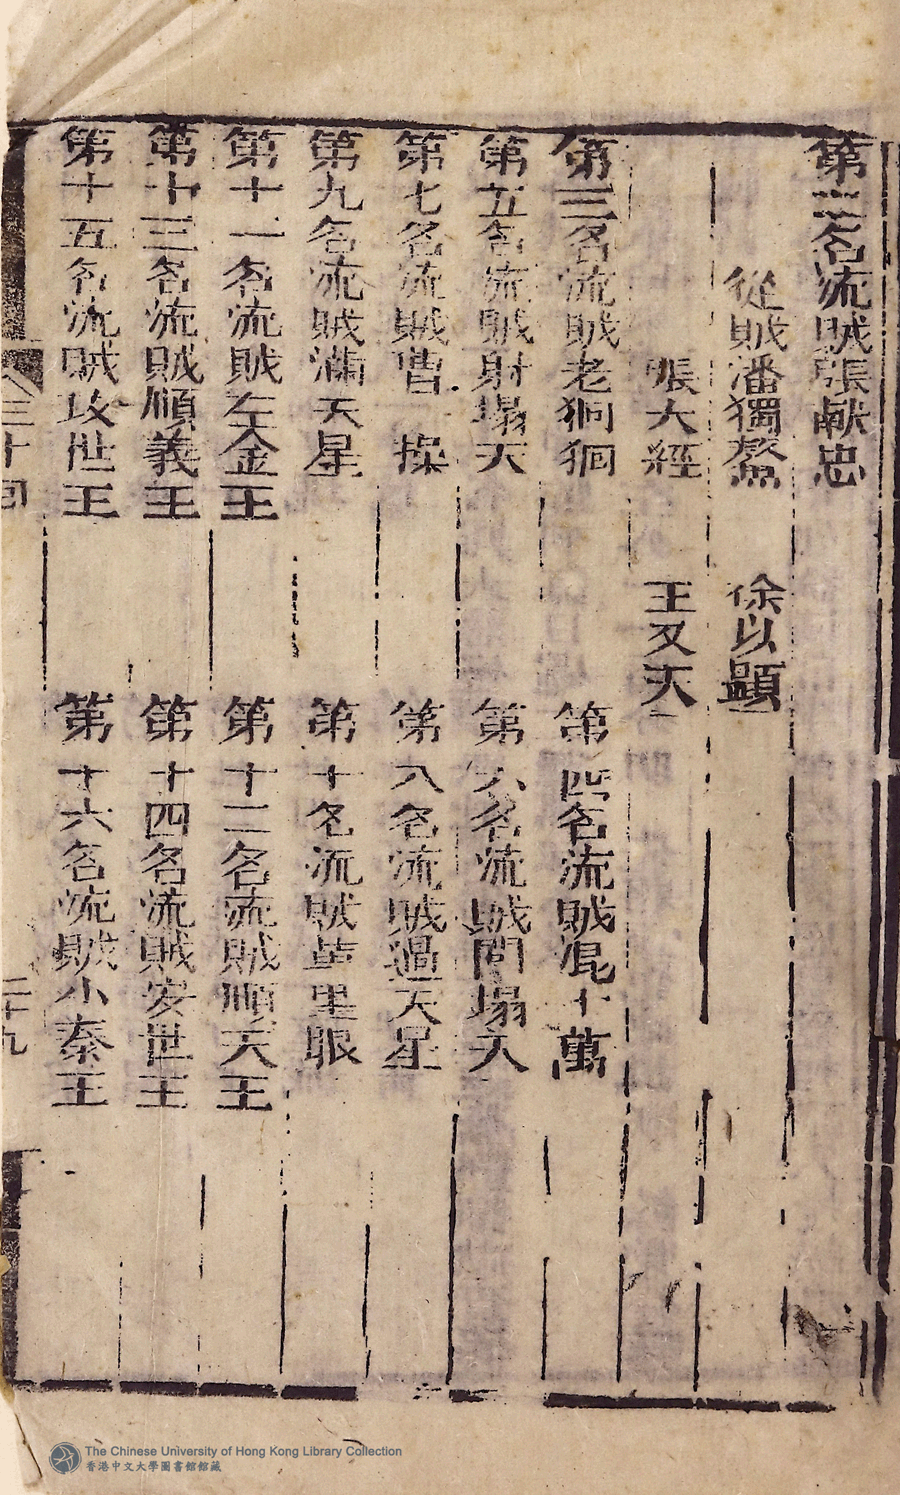 第二名流賊張献忠
從賊潘獨鰲 徐以顯
張大經 王又天
第三名流賊老𤞑𤞑 第四名流賊混十萬
第五名流賊射塌天 第六名流賊闯塌天
第七名流賊曹操 第八名流賊過天星
第九名流賊滿天星 第十名流賊革里眼
第十一名流賊左金王 第十二名流賊順天王
第十三名流賊順義王 第十四名流賊安世王
第十五名流賊攻世王 第十六名流賊小秦王
三十回
二十九
The Chinese University of Hong Kong Library Collection
香港中文大學圖書館館藏